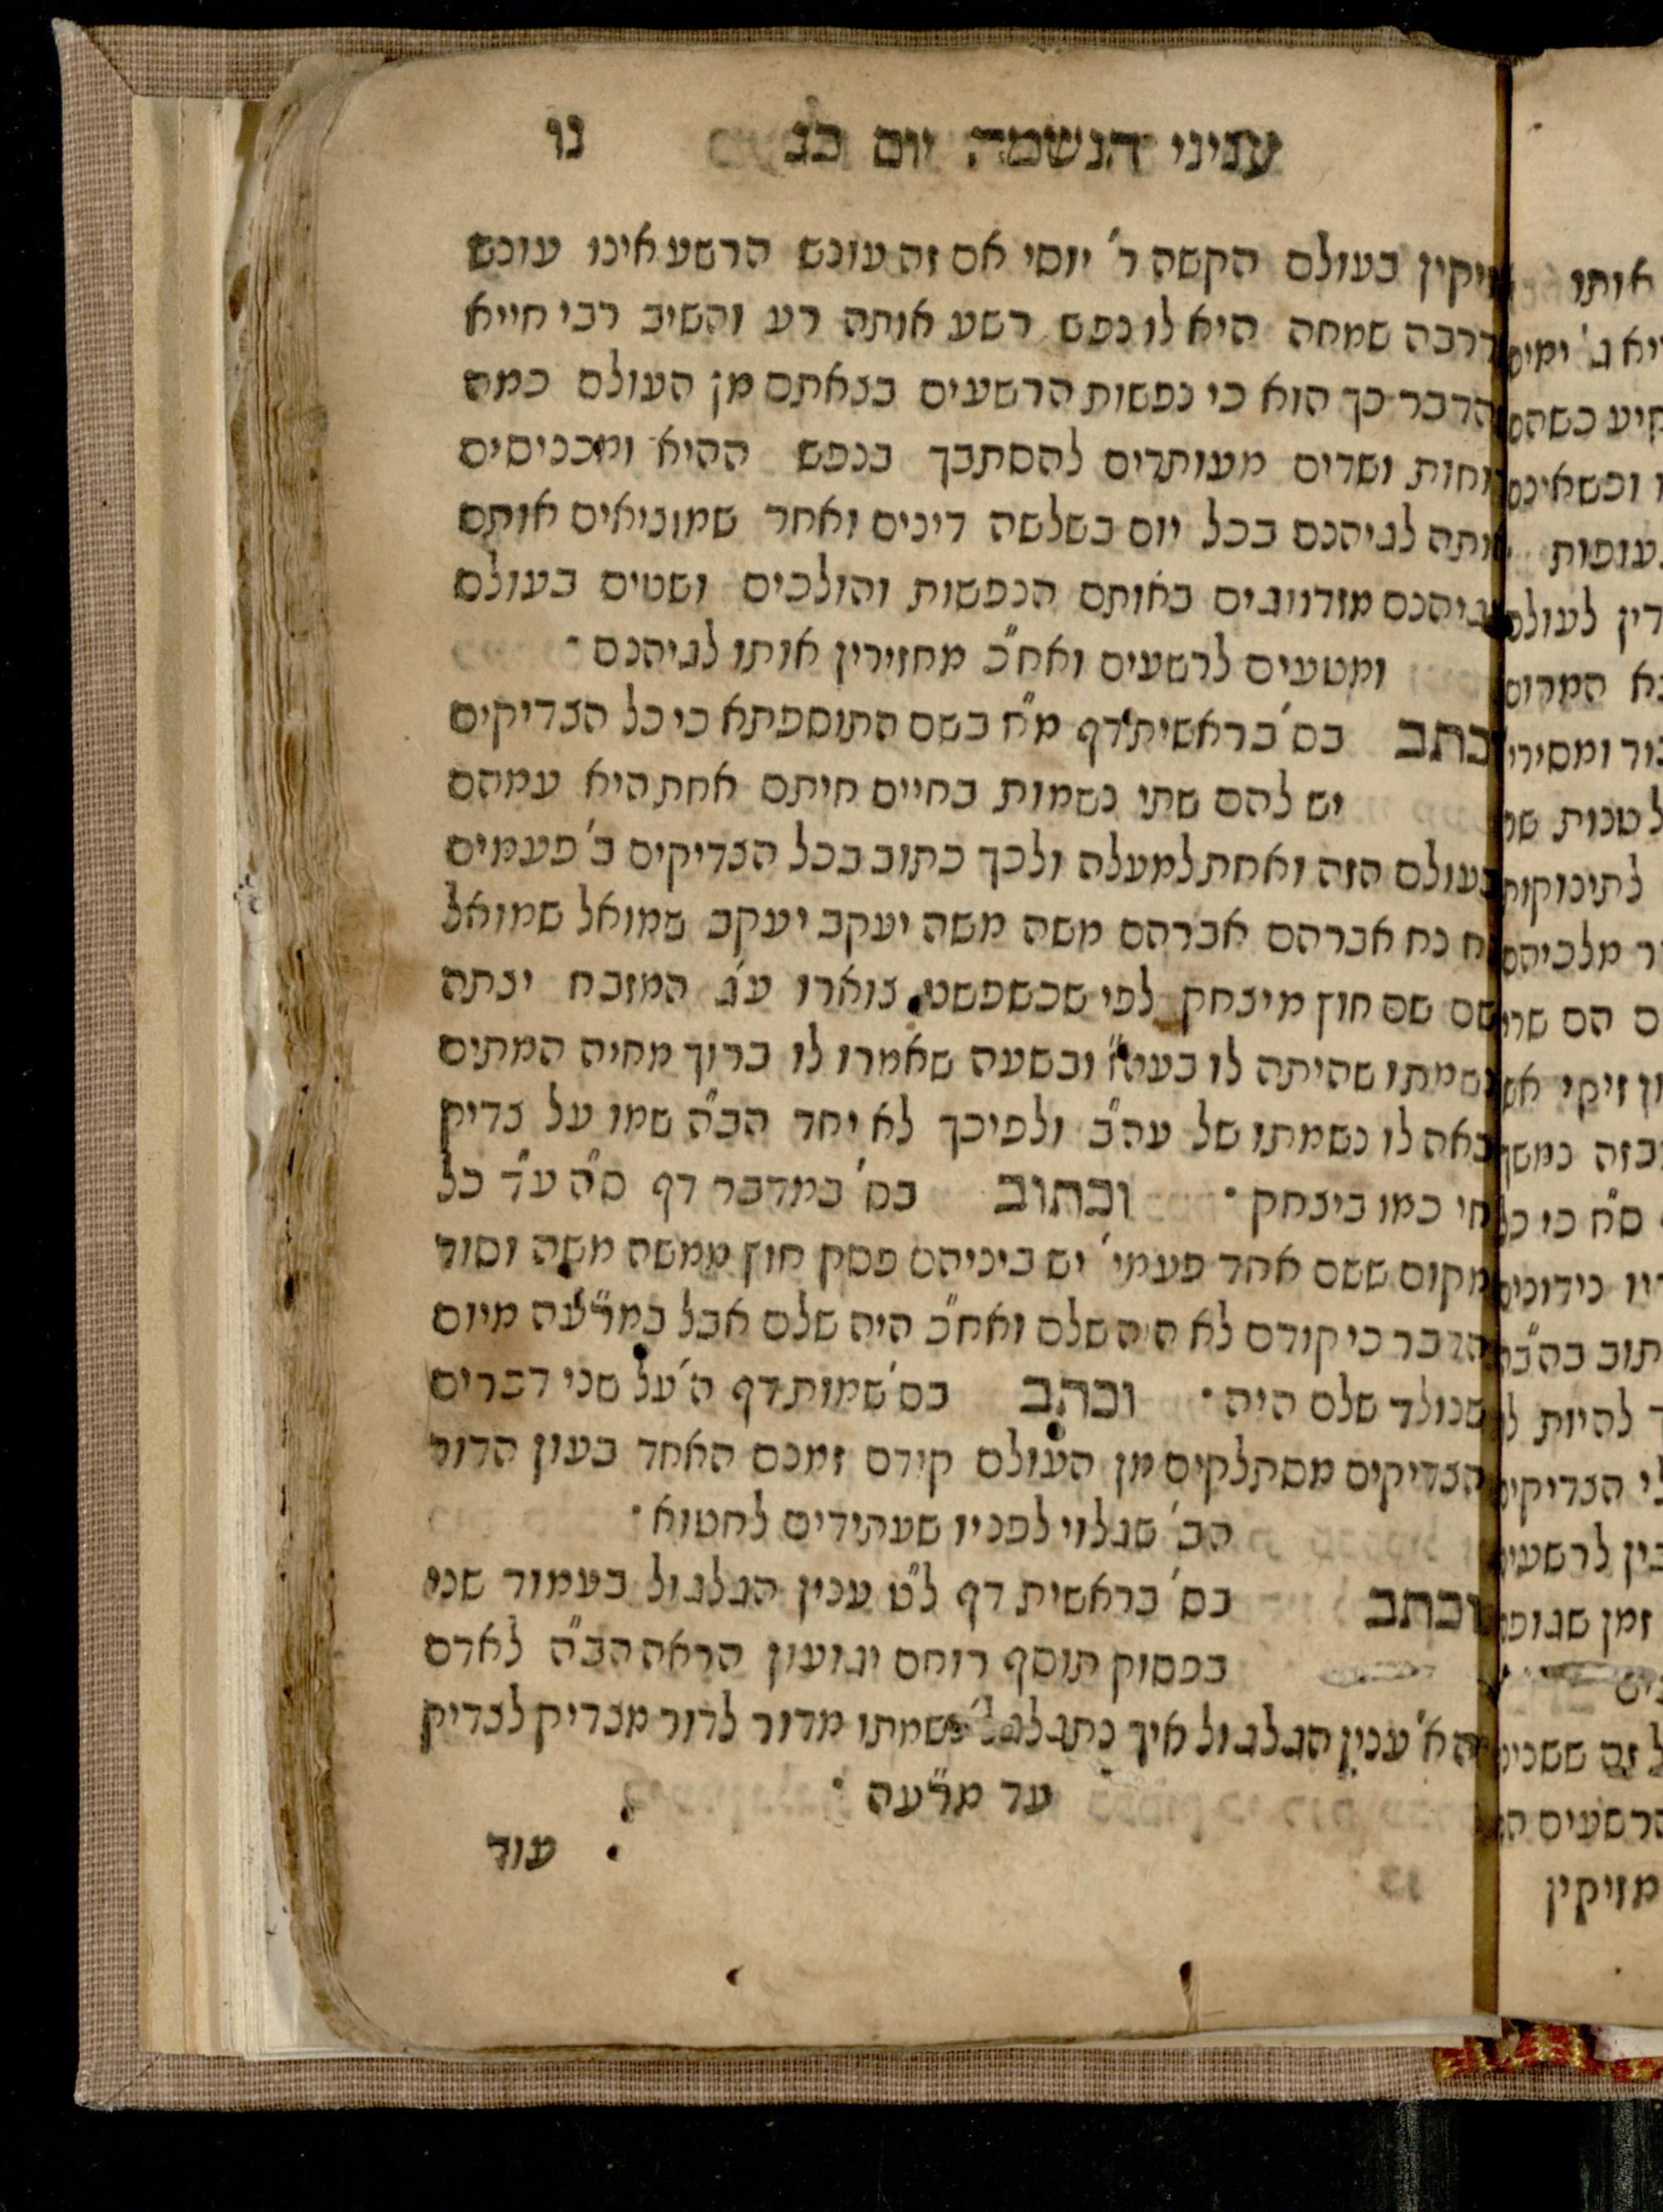 עניני הנשמה יום כג נו
מזיקין בעולם הקשה ר' יוסי אם זה עונש הרשע אינו עונש
אדרבה שמחה היא לו נפש רשע אותה רע והשיב רבי חייא
הדבר כך הוא כי נפשות הרשעים בצאתם מן העולם כמה
רוחות ושדים מעותדים להסתבך בנפש ההיא ומכניסים
אותה לגיהנם בכל יום בשלשה דינים ואחר שמוציאים אותם
מגיהנם מזדווגים באותם הנפשות והולכים ושטים בעולם
ומטעים לרשעים ואח"כ מחזירין אותו לגיהנם·
כתב בס' בראשית דף מ"ח בשם התוספתא כי כל הצדיקים
יש להם שתי נשמות בחיים חיתם אחת היא עמהם
בעולם הזה ואחת למעלה ולכך כתוב בכל הצדיקים ב' פעמים
נח נח אברהם אברהם משה משה יעקב יעקב שמואל שמואל
שם שם חוץ מיצחק לפי שכשפשט צוארו ע"ג המזבח יצתה
נשמתו שהיתה לו בעה"ז ובשעה שאמרו לו ברוך מחיה המתים
באה לו נשמתו של עה"ב ולפיכך לא יחד הב"ה שמו על צדיק
חי כמו ביצחק· וכתוב בס' במדבר דף ס"ה ע"ד כל
מקום ששם אחד פעמי' יש ביניהם פסק חוץ ממשה משה וסוד
הדבר כי קודם לא היה שלם ואח"כ היה שלם אבל במר"עה מיום
שנולד שלם היה· וכתב בס' שמות דף ה' על שני דברים
הצדיקים מסתלקים מן העולם קודם זמנם האחד בעון הדור
הב' שגלוי לפניו שעתידים לחטוא·
וכתב בס' בראשית דף ל"ט ענין הגלגול בעמוד שני
בפסוק תוסף רוחם יגועון הראה הב"ה לאדם
הא' ענין הגלגול איך נתגלגל' נשמתו מדור לדור מצדיק לצדיק
עד מר"עה·
עוד
אותו
ג' ימים
כשהם
וכשאינם
לעולם
המרום
ומסירין
לתינוקות
הם
זיקי
ס"ח כי כל
להיות
הצדיקים
לרשעים
זמן
זה ששנים
הרשעים
מזיקין